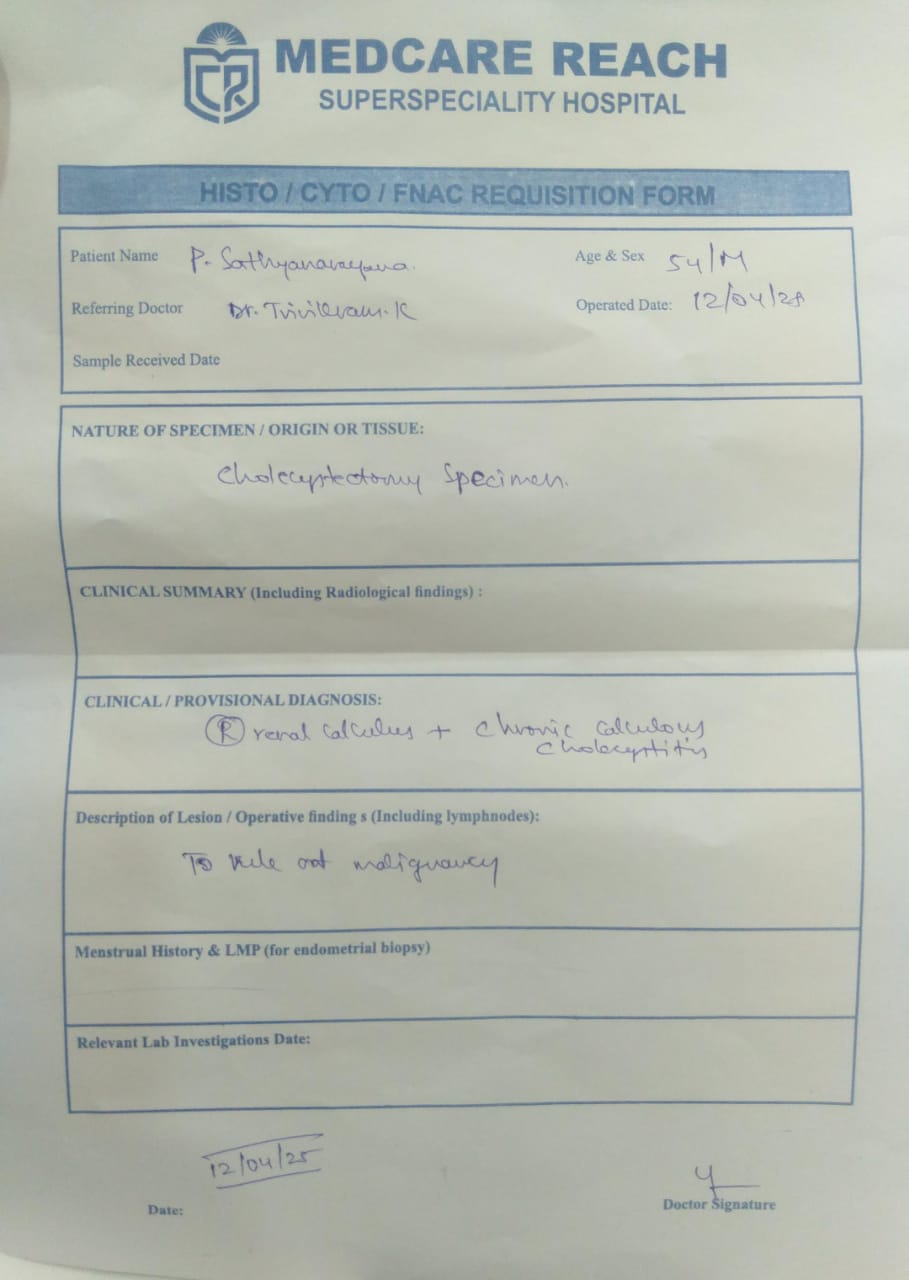 CR
MEDCARE REACH
SUPERSPECIALITY HOSPITAL
HISTO / CYTO / FNAC REQUISITION FORM
Patient Name P. Sathyanarayana. Age & Sex 54/M
Referring Doctor Dr. Trivikram.K Operated Date: 12/04/25
Sample Received Date
NATURE OF SPECIMEN / ORIGIN OR TISSUE:
Cholecystectomy Specimen.
CLINICAL SUMMARY (Including Radiological findings) :
CLINICAL / PROVISIONAL DIAGNOSIS:
Ⓡ renal calculus + chronic calculous
cholecystitis
Description of Lesion / Operative finding s (Including lymphnodes):
To rule out malignancy
Menstrual History & LMP (for endometrial biopsy)
Relevant Lab Investigations Date:
12/04/25
Date:
Doctor Signature